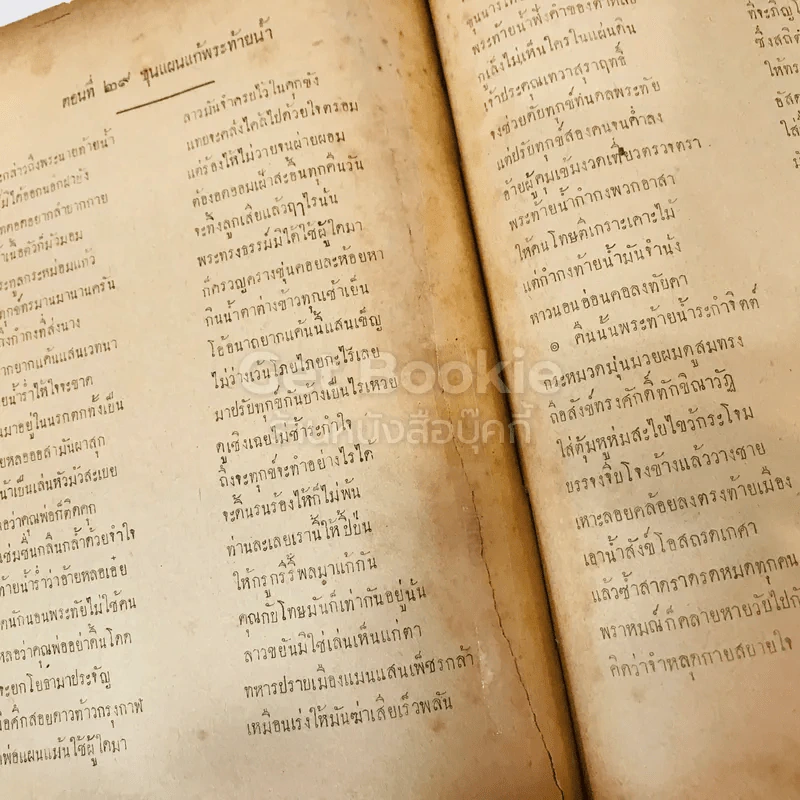 ตอนที่ ๒๙ ขุนแผนแก้พระท้ายน้ำ
กล่าวถึงพระนายท้ายน้ำ
ลาวมันจำตรยไว้ในคุกขัง
มิได้ออกนอกฝายัง
แทยจะคลั่งไคล้ไปด้วยใจตรอม
อดอยากลำยากกาย
แต่ร้องไห้ไม่วายจนผ่ายผอม
เนื้อตัวก็มัวมอม
ต้องอดออมเฝ้าสะอื้นทุกคืนวัน
ทูลกระหม่อมแก้ว
จะทิ้งลูกเสียแล้วฤๅไรนั่น
ทุกข์ทรมานมานานครัน
พระทรงธรรม์มิได้ใช้ผู้ใดมา
ถึงกำกงที่ส่งนาง
ก็ครวญครางขุ่นคอยละห้อยหา
ยากแค้นแสนเวทนา
กินน้ำตาต่างข้าวทุกเช้าเย็น
น้ำร่ำไห้ใจจะขาด
โอ้อนาถยากแค้นนี้แสนเข็ญ
มาอยู่ในนรกตกทั้งเป็น
ไม่ว่างเวนโภยไภยกะไรเลย
หลอออสามันผาสุก
มาปรับทุกข์กันบ้างเป็นไรเหวย
น้าเอ็นเล่นหัวมัวสะเบย
ดูเชิงเฉยไม่ช้าระกำใจ
ว่าคุณพ่อก็ติดคุก
ถึงจะทุกข์จะทำอย่างไรได้
แช่มชื่นกลืนกล้ำด้วยจำใจ
จะดิ้นรนร้องไห้ก็ไม่พ้น
ท้ายน้ำร่ำว่าอ้ายหลอเอ๋ย
ท่านละเลยเรานี้ให้ปี้ป่น
หนักนอนพระทัยไม่ใช้คน
ให้กรูกรีรี้พลมาแก้กัน
หลอว่าคุณพ่ออย่าดื้นโดด
คุณกับโทษมันก็เท่ากันอยู่นั่น
จะยกโยธามาประจัญ
ลาวขยันมิใช่เล่นเห็นแก่ตา
สอยดาวท้าวกรุงกาฬ
ทหารปราบเมืองแมนแสนเพ็ชรกล้า
พ่อแผนแม้นใช้ผู้ใดมา
เหมือนเร่งให้มันฆ่าเสียเร็วพลัน
พระท้ายน้ำฟังคำของตาหลอ
กูเล็งไม่เห็นใครในแผ่นดิน
เจ้าประคุณเทวาสุราฤทธิ์
ซึ่งสถิต
จงช่วยดับทุกข์ทนดลพระทัย
ให้ทร
แต่ปรับทุกข์สองคนจนค่ำลง
อัสด
อ้ายผู้คุมเข้มงวดเที่ยวตรวจตรา
ใส่
พระท้ายน้ำกำกงพวกอาสา
ให้คนโทษตีเกราะเคาะไม้
แต่กำกงท้ายน้ำมันจำนั่ง
หาวนอนอ่อนคอลงทัยคา
๏ คืนนั้นพระท้ายน้ำระกำจิตต์
กระหมวดมุ่นมวยผมดูสมทรง
ถือสังข์ทรงศักดิ์ทักขิณาวัฏ
ใส่ตุ้มหูห่มสะไบไขว้กระโจม
บรรจงจีบโจงข้างแล้ววางชาย
เหาะลอยคล้อยลงตรงท้ายเมือง
เอาน้ำสังข์โอสถรดเกศา
แล้วซ้ำสาดราดรดหมดทุกคน
พราหมณ์ก็คลายหายวับไปกับ
คิดว่าจำหลุดกายสบายใจ
Get Bookie
ร้านหนังสือบุ๊คกี้